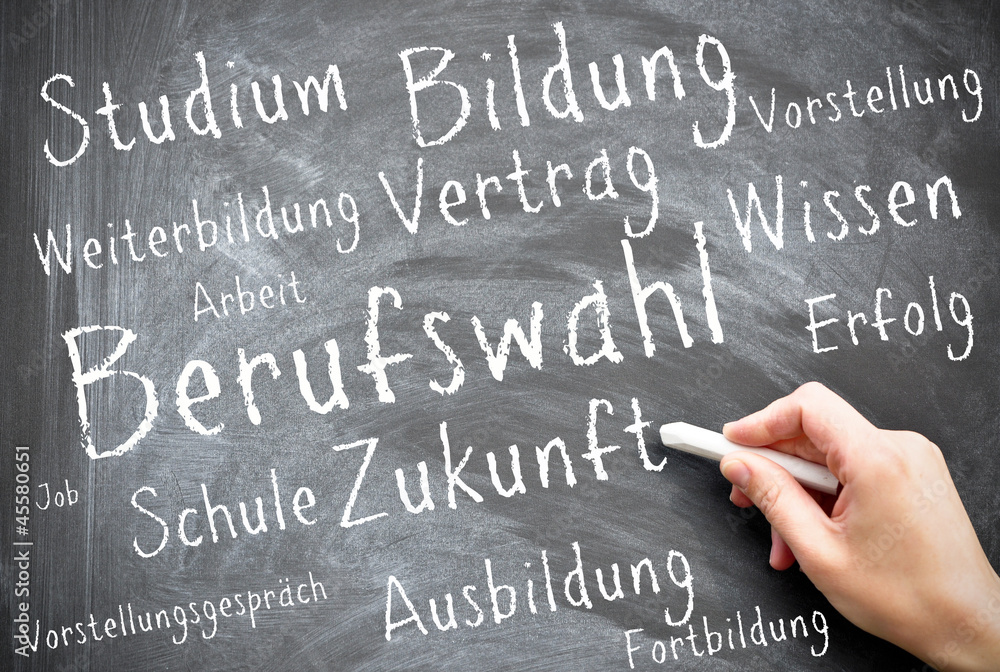 Studium Bildung Vorstellung
Weiterbildung Vertrag Wissen
Arbeit
Berufswahl Erfolg
Job Schule Zukunft
Vorstellungsgespräch Ausbildung
Fortbildung
Adobe Stock | #45580651